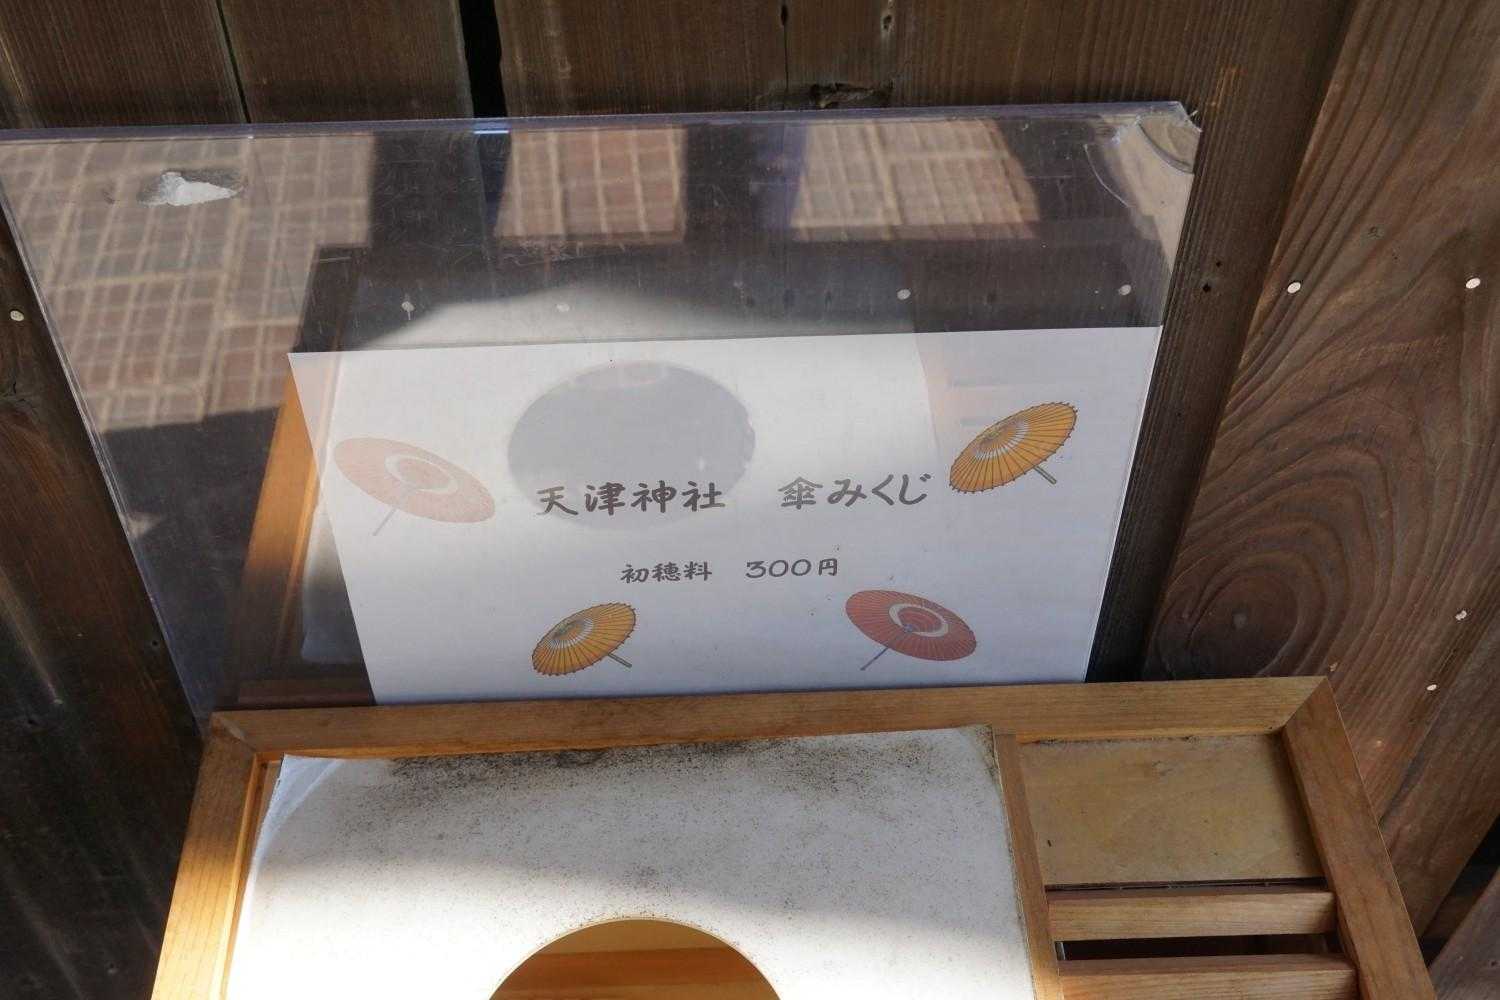 天津神社　傘みくじ
初穂料　300円